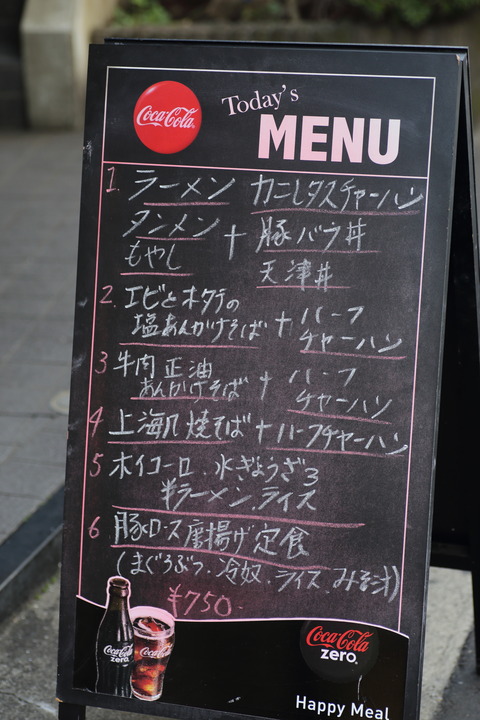 Coca-Cola
Today's
MENU
1. ラーメン カニレタスチャーハン
タンメン + 豚バラ丼
もやし
天津丼
2. エビとホタテの
塩あんかけそば + ハーフ
チャーハン
3 牛肉正油
あんかけそば + ハーフ
チャーハン
4 上海風焼そば + ハーフチャーハン
5 ホイコーロ.水ぎょうざ3
半ラーメン.ライス
6 豚ロース唐揚げ定食
(まぐろぶつ.冷奴.ライス.みそ汁)
¥750-
Coca-Cola
zero
Coca-Cola
Coca-Cola
zero.
Happy Meal